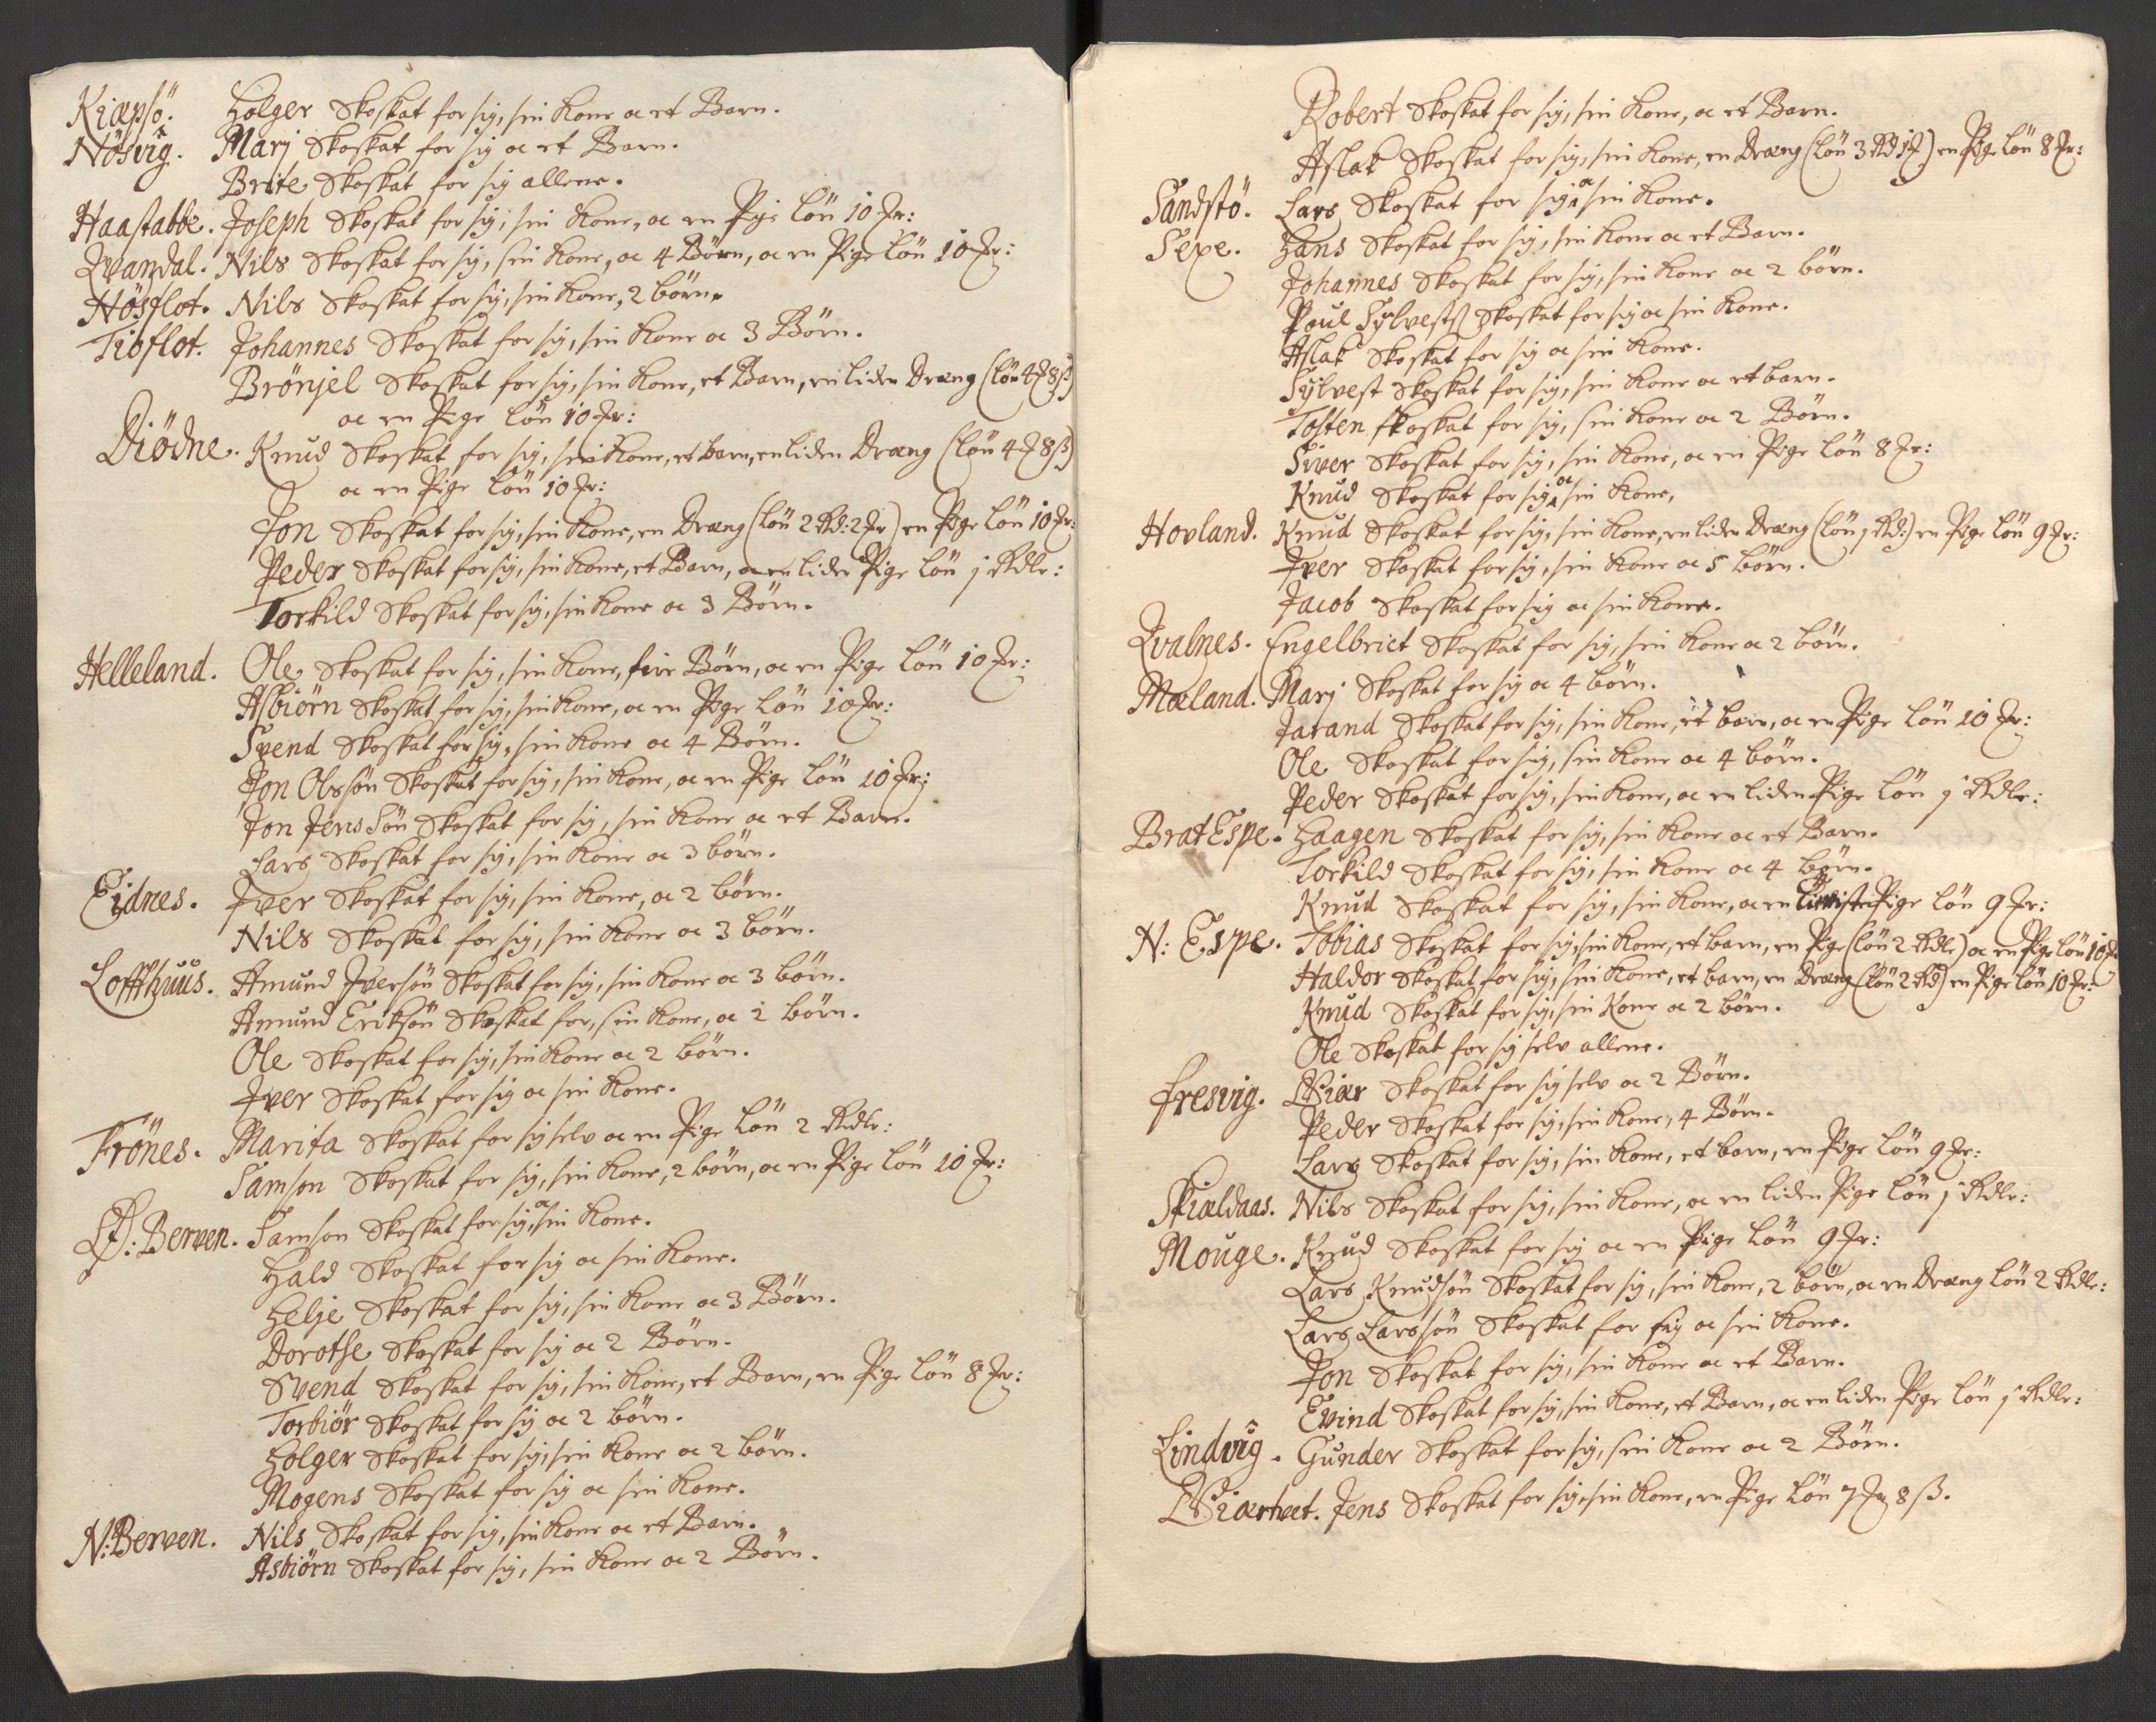 Kiæpsö. Holger Skoskat for sig, sin Kone oc et Barn.
Nösvig. Marj Skoskat for sig oc et Barn.
Brite Skoskat for sig allene.
Haastabbe. Joseph Skoskat for sig, sin Kone, oc en Pige Lön 10 Jr:
Qvandal. Nils Skoskat for sig, sin Kone, oc 4 Börn, oc en Pige Lön 10 Jr:
Hösflot. Nils Skoskat for sig, sin Kone, 2 börn.
Tioflot. Johannes Skoskat for sig, sin Kone oc 3 Börn.
Brönjel Skoskat for sig, sin Kone, et Barn, en liden Dræng (Lön 4 J 8 ß)
oc en Pige Lön 10 Jr:
Diödne. Knud Skoskat for sig, sin Kone, et barn, en liden Dræng (Lön 4 J 8 ß)
oc en Pige Lön 10 Jr:
Jon Skoskat for sig, sin Kone, en Dræng (Lön 2 Rd: 2 Jr) en Pige Lön 10 Jr:
Peder Skoskat for sig, sin Kone, et Barn, oc en liden Pige Lön j Rdlr:
Torkild Skoskat for sig, sin Kone oc 3 Börn.
Helleland. Ole Skoskat for sig, sin Kone, fire Börn, oc en Pige Lön 10 Jr:
Asbiörn Skoskat for sig, sin Kone, oc en Pige Lön 10 Jr:
Svend Skoskat for sig, sin Kone oc 4 Börn.
Jon Olssön Skoskat for sig, sin Kone, oc en Pige Lön 10 Jr:
Jon Jens Sön Skoskat for sig, sin Kone oc et Barn.
Lars Skoskat for sig, sin Kone oc 3 börn.
Eidnes. Iver Skoskat for sig, sin Kone, oc 2 börn.
Nils Skoskat for sig, sin Kone oc 3 börn.
Loffthuus. Amund Iversön Skoskat for sig, sin Kone oc 3 börn.
Amund Eriksön Skoskat for, sin Kone, oc 2 börn.
Ole Skoskat for sig, sin Kone oc 2 börn.
Iver Skoskat for sig oc sin Kone.
Frönes. Marita Skoskat for sig selv oc en Pige Lön 2 Rdlr:
Samson Skoskat for sig, sin Kone, 2 börn, oc en Pige Lön 10 Jr:
Ø: Berven. Samson Skoskat for sig, oc sin Kone.
Hald Skoskat for sig oc sin Kone.
Helje Skoskat for sig, sin Kone oc 3 Börn.
Dorothe Skoskat for sig oc 2 Börn.
Svend Skoskat for sig, sin Kone, et Barn, en Pige Lön 8 Jr:
Torbiör Skoskat for sig oc 2 börn.
Holger Skoskat for sig, sin Kone oc 2 börn.
Mogens Skoskat for sig oc sin Kone.
N: Berven. Nils Skoskat for sig, sin Kone oc et Barn.
Asbiörn Skoskat for sig, sin Kone oc 2 Börn.
Robert Skoskat for sig, sin Kone, oc et Barn.
Aslak Skoskat for sig, sin Kone, en Dræng (Lön 3 Rd 1 J) en Pige Lön 8 Jr:
Sandstö. Lars Skoskat for sig oc sin Kone.
Sexe. Hans Skoskat for sig, sin Kone oc et Barn.
Johannes Skoskat for sig, sin Kone oc 2 börn.
Poul Sylvestß Skoskat for sig oc sin Kone.
Aslak Skoskat for sig oc sin Kone.
Sylvest Skoskat for sig, sin Kone oc et barn.
Tosten skoskat for sig, sin Kone oc 2 Börn.
Siver Skoskat for sig, sin Kone, oc en Pige Lön 8 Jr:
Knud Skoskat for sig oc sin Kone,
Hovland. Knud Skoskat for sig, sin Kone, en liden Dræng (Lön j Rd:) en Pige Lön 9 Jr:
Iver Skoskat for sig, sin Kone oc 5 börn.
Jacob Skoskat for sig oc sin Kone.
Qvalnes. Engelbrict Skoskat for sig, sin Kone oc 2 börn.
Mæland. Marj Skoskat for sig oc 4 börn.
Jarand Skoskat for sig, sin Kone, et barn, oc en Pige Lön 10 Jr:
Ole Skoskat for sig, sin Kone oc 4 börn.
Peder Skoskat for sig, sin Kone, oc en liden Pige Lön j Rdlr:
BratEspe. Haagen Skoskat for sig, sin Kone oc et Barn.
Torkild Skoskat for sig, sin Kone oc 4 börn.
Knud Skoskat for sig, sin Kone, oc en Pige Lön 9 Jr:
N: Espe. Tobias Skoskat for sig, sin Kone, et barn, en Pige (Lön 2 Rdlr) oc en Pige Lön 10 Jr
Haldor Skoskat for sig, sin Kone, et barn, en Dræng (Lön 2 Rd) en Pige Lön 10 Jr:
Knud Skoskat for sig, sin Kone oc 2 börn.
Ole Skoskat for sig selv allene.
Fresvig. Skoskat for sig selv oc 2 Börn.
Peder Skoskat for sig, sin Kone, 4 Börn.
Lars Skoskat for sig, sin Kone, et barn, en Pige Lön 9 Jr:
Skieldaas. Nils Skoskat for sig, sin Kone, oc en liden Pige Lön j Rdlr:
Mouge. Knud Skoskat for sig oc en Pige Lön 9 Jr:
Lars Knudsön Skoskat for sig, sin Kone, 2 börn, oc en Dræng Lön 2 Rdlr:
Lars Larssön Skoskat for sig oc sin Kone.
Jon Skoskat for sig, sin Kone oc et Barn.
Evind Skoskat for sig, sin Kone, et Barn, oc en liden Pige Lön j Rdlr:
Lindvig. Gunder Skoskat for sig, sin Kone oc 2 Börn.
Jens Skoskat for sig, sin Kone, en Pige Lön 7 Jr 8 ß.